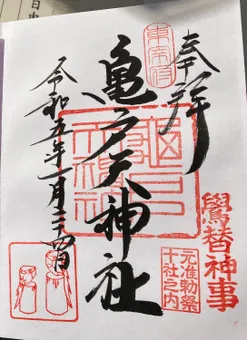 奉拝
東宰府
亀戸天神社
鷽替神事
元准勅祭
十社之内
令和五年一月二十四日